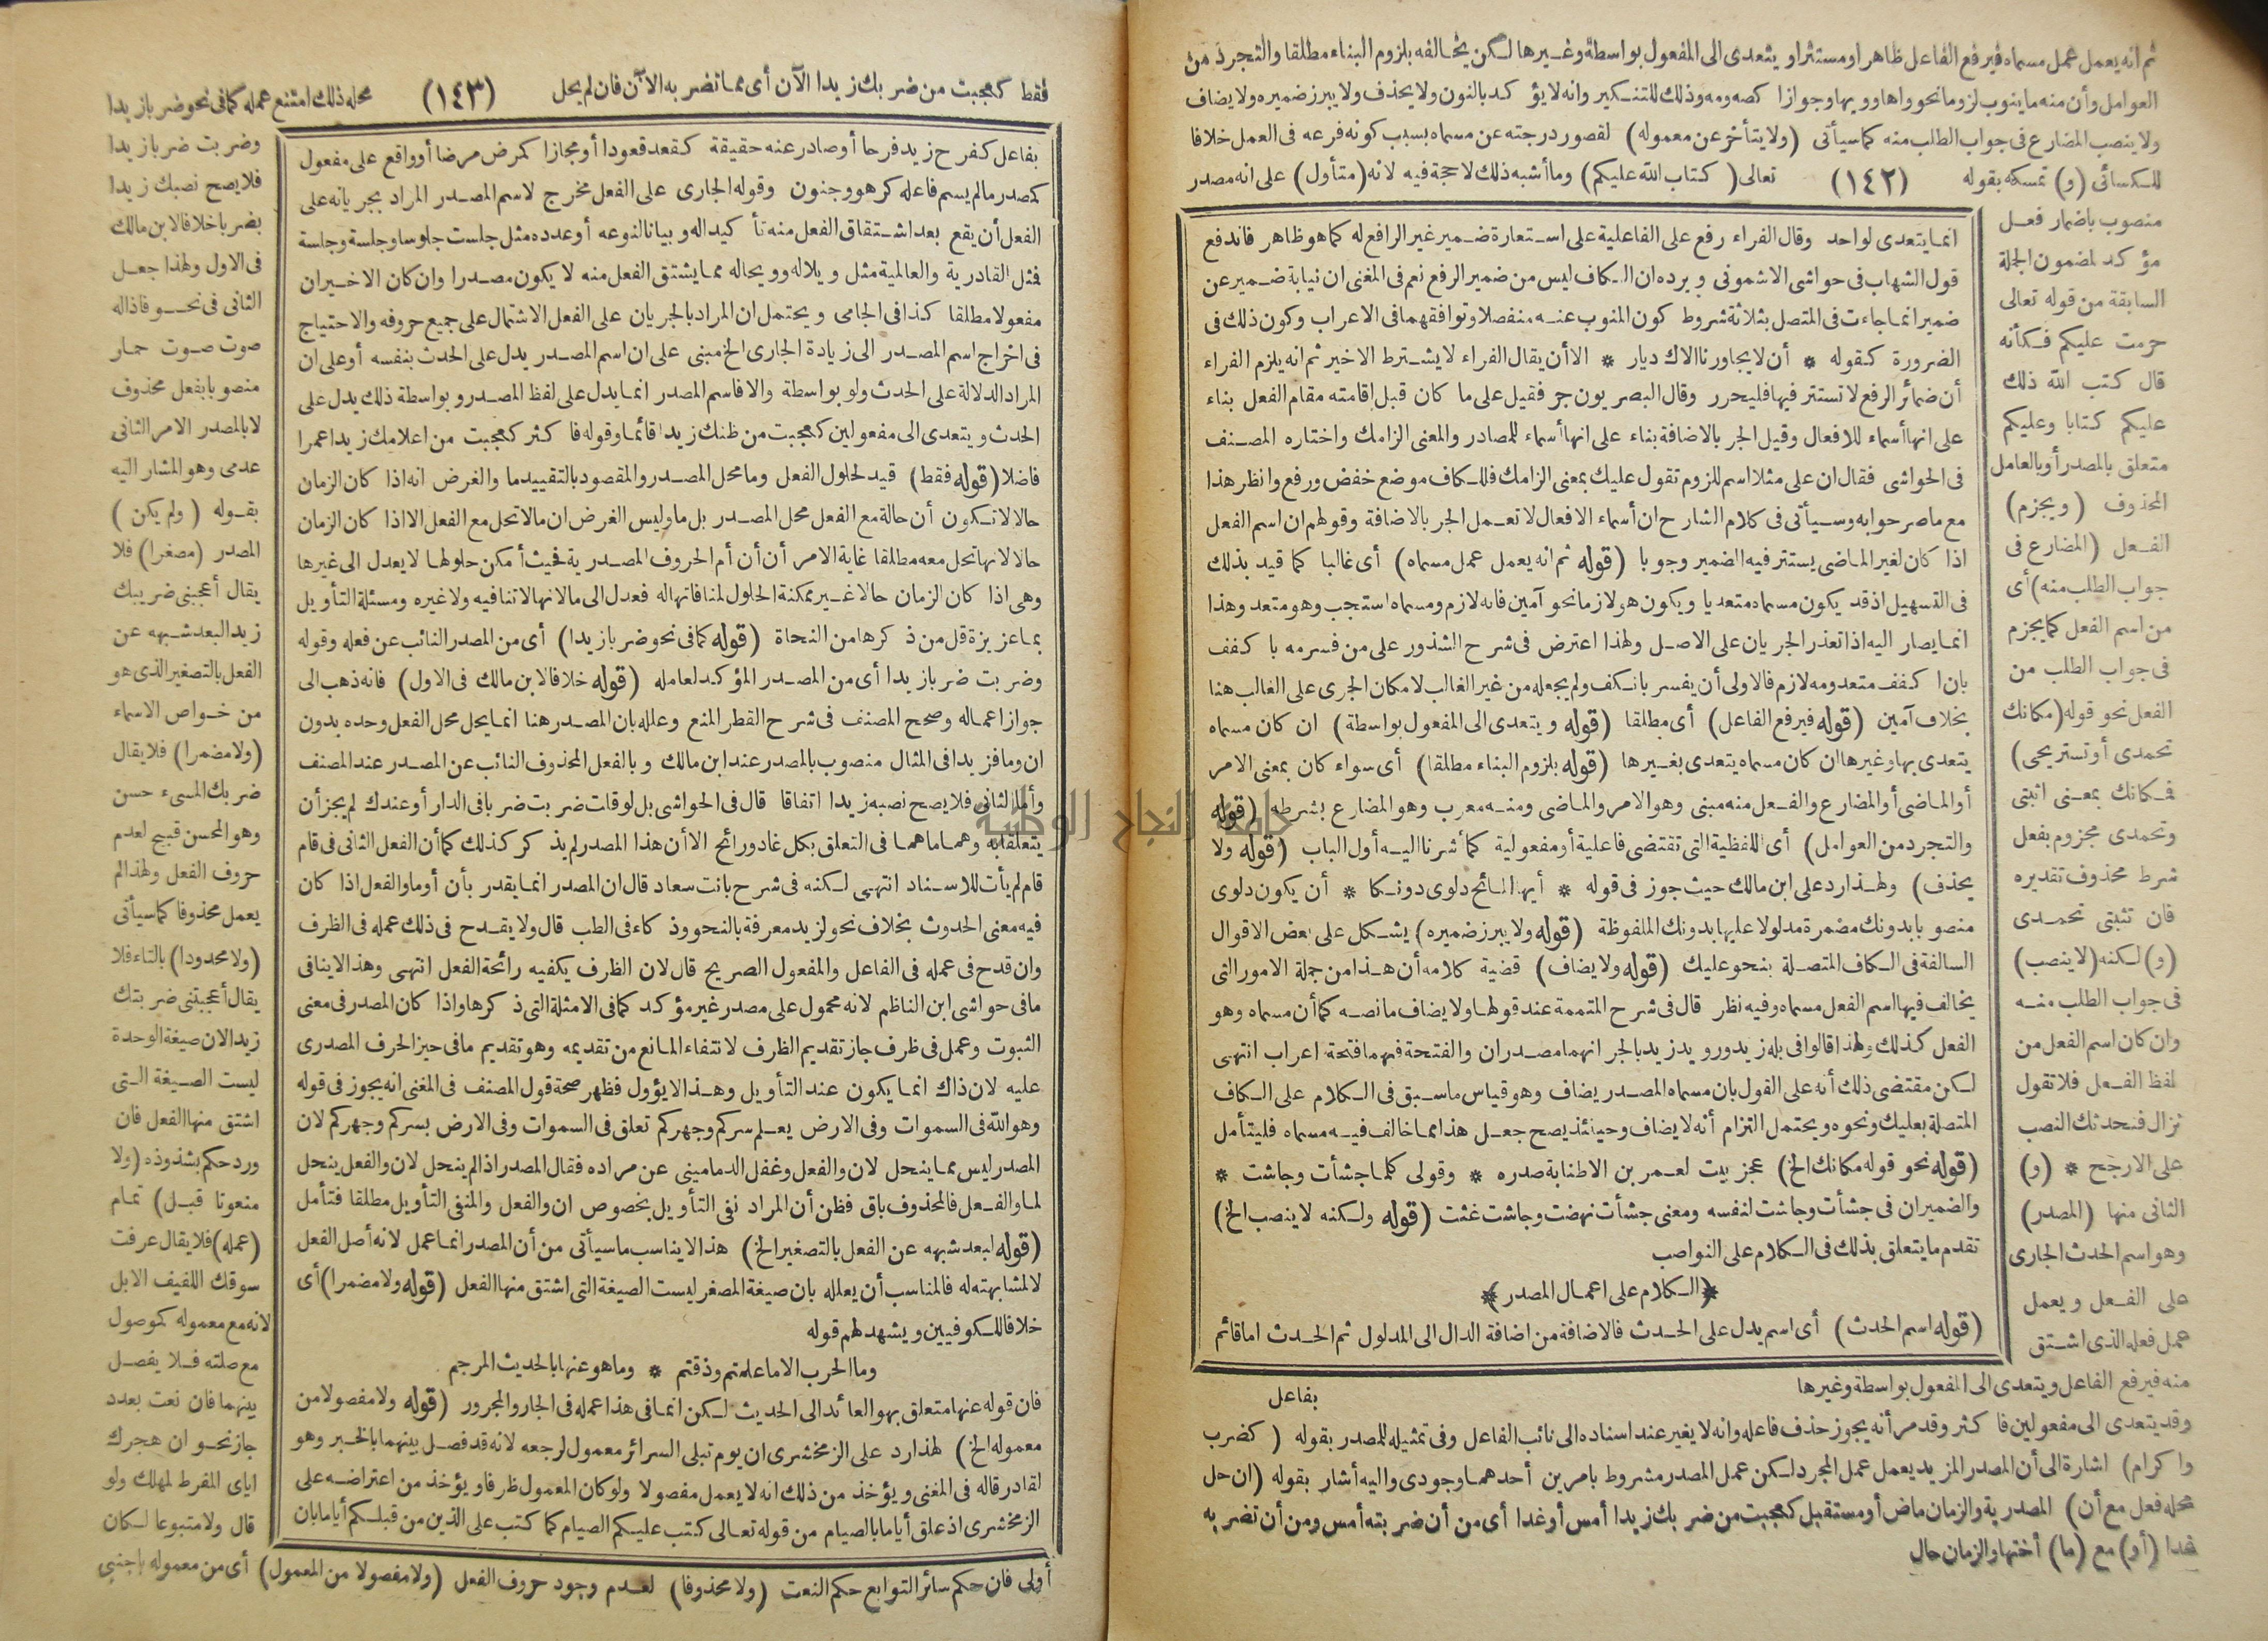 ثم انه يعمل عمل مسماه فيرفع الفاعل ظاهرا ومستترا ويتعدى الى المفعول بواسطة وغيرها لكن يخالفه بلزوم البناء مطلقا والتجرد من
العوامل وأن منه ما ينوب لزوما نحو واها وويها وجوازا كصه ومه وذلك للتنكير وانه لا يؤكد بالنون ولا يحذف ولا يبرز ضميره ولا يضاف
ولا ينصب المضارع فى جواب الطلب منه كما سيأتى (ولا يتأخر عن معموله) لقصور درجته عن مسماه بسبب كونه فرعه فى العمل خلافا
للكسائى (و) تمسكه بقوله (١٤٢) تعالى (كتاب الله عليكم) وما أشبه ذلك لا حجة فيه لانه (متأول) على انه مصدر
منصوب باضمار فعل
مؤكد لمضمون الجملة
السابقة من قوله تعالى
حرمت عليكم فكأنه
قال كتب الله ذلك
عليكم كتابا وعليكم
متعلق بالمصدر أو بالعامل
المحذوف (ويجزم)
الفعل (المضارع فى
جواب الطلب منه) أى
من اسم الفعل كما يجزم
فى جواب الطلب من
الفعل نحو قوله (مكانك
تحمدى أو تستريحى)
فمكانك بمعنى اثبتى
وتحمدى مجزوم بفعل
شرط محذوف تقديره
فان تثبتى تحمدى
(و) لكنه (لا ينصب)
فى جواب الطلب منه
وان كان اسم الفعل من
لفظ الفعل فلا تقول
نزال فنحدثك النصب
على الارجح * (و)
الثانى منها (المصدر)
وهو اسم الحدث الجارى
على الفعل ويعمل
عمل فعله الذى اشتق
منه فيرفع الفاعل ويتعدى الى المفعول بواسطة وغيرها
وقد يتعدى الى مفعولين فاكثر وقد مر أنه يجوز حذف فاعله وانه لا يغير عند اسناده الى نائب الفاعل وفى تمثيله للمصدر بقوله (كضرب
واكرام) اشارة الى أن المصدر المزيد يعمل عمل المجرد لكن عمل المصدر مشروط بامرين أحدهما وجودى واليه أشار بقوله (ان حل
محله فعل مع أن) المصدرية والزمان ماض أو مستقبل كعجبت من ضربك زيدا أمس أو غدا أى من أن ضربته أمس ومن أن تضربه
غدا (أو) مع (ما) أختها والزمان حال
انما يتعدى لواحد وقال الفراء رفع على الفاعلية على استعارة ضمير غير الرافع له كما هو ظاهر فاندفع
قول الشهاب فى حواشى الاشمونى ويرده ان الكاف ليس من ضمير الرفع نعم فى المغنى ان نيابة ضمير عن
ضمير انما جاءت فى المتصل بثلاثة شروط كون المنوب عنه منفصلا وتوافقهما فى الاعراب وكون ذلك فى
الضرورة كقوله * أن لا يجاورنا الاك ديار * الا أن يقال الفراء لا يشترط الاخير ثم انه يلزم الفراء
أن ضمائر الرفع لا تستتر فيها فليحرر وقال البصريون جر فقيل على ما كان قبل اقامته مقام الفعل بناء
على انها أسماء للافعال وقيل الجر بالاضافة بناء على انها أسماء للمصادر والمعنى الزامك واختاره المصنف
فى الحواشى فقال ان على مثلا اسم للزوم تقول عليك بمعنى الزامك فللكاف موضع خفض ورفع وانظر هذا
مع ما صر حوابه وسيأتى فى كلام الشارح ان أسماء الافعال لا تعمل الجر بالاضافة وقولهم ان اسم الفعل
اذا كان لغير الماضى يستتر فيه الضمير وجوبا (قوله ثم انه يعمل عمل مسماه) أى غالبا كما قيد بذلك
فى التسهيل اذ قد يكون مسماه متعديا ويكون هو لازما نحو آمين فانه لازم ومسماه استجب وهو متعد وهذا
انما يصار اليه اذا تعذر الجريان على الاصل ولهذا اعترض فى شرح الشذور على من فسر مه باكفف
بان اكفف متعد ومه لازم فالاولى أن يفسر بانكف ولم يجعله من غير الغالب لامكان الجرى على الغالب هنا
بخلاف آمين (قوله فيرفع الفاعل) أى مطلقا (قوله ويتعدى الى المفعول بواسطة) ان كان مسماه
يتعدى بها وغيرها ان كان مسماه يتعدى بغيرها (قوله بلزوم البناء مطلقا) أى سواء كان بمعنى الامر
أو الماضى أو المضارع والفعل منه مبنى وهو الامر والماضى ومنه معرب وهو المضارع بشرطه (قوله
والتجرد من العوامل) أى اللفظية التى تقتضى فاعلية أو مفعولية كما أشرنا اليه أول الباب (قوله ولا
يحذف) ولهذا رد على ابن مالك حيث جوز فى قوله * أيها المائح دلوى دونكا * أن يكون دلوى
منصوبا بدونك مضمرة مدلولا عليها بدونك الملفوظة (قوله ولا يبرز ضميره) يشكل على بعض الاقوال
السالفة فى الكاف المتصلة بنحو عليك (قوله ولا يضاف) قضية كلامه أن هذا من جملة الامور التى
يخالف فيها اسم الفعل مسماه وفيه نظر قال فى شرح المتممة عند قولها ولا يضاف ما نصه كما أن مسماه وهو
الفعل كذلك ولهذا قالوا فى بله زيد ورويد زيد بالجر انهما مصدران والفتحة فيهما فتحة اعراب انتهى
لكن مقتضى ذلك أنه على القول بان مسماه المصدر يضاف وهو قياس ما سبق فى الكلام على الكاف
المتصلة بعليك ونحوه ويحتمل التزام أنه لا يضاف وحينئذ يصح جعل هذا مما خالف فيه مسماه فليتأمل
(قوله نحو قوله مكانك الخ) عجز بيت لعمر بن الاطنابة صدره * وقولى كلما جشأت وجاشت *
والضميران فى جشأت وجاشت لنفسه ومعنى جشأت نهضت وجاشت غثت (قوله ولكنه لا ينصب الخ)
تقدم ما يتعلق بذلك فى الكلام على النواصب
﴿الكلام على اعمال المصدر﴾
(قوله اسم الحدث) أى اسم يدل على الحدث فالاضافة من اضافة الدال الى المدلول ثم الحدث اما قائم
بفاعل
فقط كعجبت من ضربك زيدا الآن أى مما تضربه الآن فان لم يحل (١٤٣) محله ذلك امتنع عمله كما فى نحو ضربا زيدا
بفاعل كفرح زيد فرحا أو صادر عنه حقيقة كقعد قعودا أو مجازا كمرض مرضا أو واقع على مفعول
كمصدر ما لم يسم فاعله كرهو وجنون وقوله الجارى على الفعل مخرج لاسم المصدر المراد بجريانه على
الفعل أن يقع بعد اشتقاق الفعل منه تأكيدا له وبيانا لنوعه أو عدده مثل جلست جلوسا وجلسة وجلسة
فمثل القادرية والعالمية مثل ويلا له وويحا له مما يشتق الفعل منه لا يكون مصدرا وان كان الاخيران
مفعولا مطلقا كذا فى الجامى ويحتمل ان المراد بالجريان على الفعل الاشتمال على جميع حروفه والاحتياج
فى اخراج اسم المصدر الى زيادة الجارى الخ مبنى على ان اسم المصدر يدل على الحدث بنفسه أو على ان
المراد الدلالة على الحدث ولو بواسطة والا فاسم المصدر انما يدل على لفظ المصدر وبواسطة ذلك يدل على
الحدث ويتعدى الى مفعولين كعجبت من ظنك زيدا قائما وقوله فاكثر كعجبت من اعلامك زيدا عمرا
فاضلا (قوله فقط) قيد لحلول الفعل وما محل المصدر والمقصود بالتقييد ما والغرض انه اذا كان الزمان
حالا لا تكون أن حالة مع الفعل محل المصدر بل ما وليس الغرض ان ما لا تحل مع الفعل الا اذا كان الزمان
حالا لانها تحل معه مطلقا غاية الامر أن أن أم الحروف المصدرية فحيث أمكن حلولها لا يعدل الى غيرها
وهى اذا كان الزمان حالا غير ممكنة الحلول لمنافاتها له فعدل الى ما لانها لا تنافيه ولا غيره ومسئلة التأويل
بما عزيزة قل من ذكرها من النحاة (قوله كما فى نحو ضربا زيدا) أى من المصدر النائب عن فعله وقوله
وضربت ضربا زيدا أى من المصدر المؤكد لعامله (قوله خلافا لابن مالك فى الاول) فانه ذهب الى
جواز اعماله وصحح المصنف فى شرح القطر المنع وعلله بان المصدر هنا انما يحل محل الفعل وحده بدون
ان وما فزيدا فى المثال منصوب بالمصدر عند ابن مالك وبالفعل المحذوف النائب عن المصدر عند المصنف
وأما الثانى فلا يصح نصبه زيدا اتفاقا قال فى الحواشى بل لو قلت ضربت ضربا فى الدار أو عندك لم يجز أن
يتعلقا به وهما ما هما فى التعلق بكل غاد ورائح الا أن هذا المصدر لم يذكر كذلك كما أن الفعل الثانى فى قام
قام لم يأت للاسناد انتهى لكنه فى شرح بانت سعاد قال ان المصدر انما يقدر بأن أو ما والفعل اذا كان
فيه معنى الحدوث بخلاف نحو لزيد معرفة بالنحو وذكاء فى الطب قال ولا يقدح فى ذلك عمله فى الظرف
وان قدح فى عمله فى الفاعل والمفعول الصريح قال لان الظرف يكفيه رائحة الفعل انتهى وهذا لا ينافى
ما فى حواشى ابن الناظم لانه محمول على مصدر غير مؤكد كما فى الامثلة التى ذكرها واذا كان المصدر فى معنى
الثبوت وعمل فى ظرف جاز تقديم الظرف لانتفاء المانع من تقديمه وهو تقديم ما فى حيز الحرف المصدرى
عليه لان ذاك انما يكون عند التأويل وهذا لا يؤول فظهر صحة قول المصنف فى المغنى انه يجوز فى قوله
وهو الله فى السموات وفى الارض يعلم سركم وجهركم تعلق فى السموات وفى الارض بسركم وجهركم لان
المصدر ليس مما ينحل لان والفعل وغفل الدمامينى عن مراده فقال المصدر اذا لم ينحل لان والفعل ينحل
لما والفعل فالمحذوف باق فظن أن المراد نفى التأويل بخصوص ان والفعل والمنفى التأويل مطلقا فتأمل
(قوله لبعد شبهه عن الفعل بالتصغير الخ) هذا لا يناسب ما سيأتى من أن المصدر انما عمل لانه أصل الفعل
لا لمشابهته له فالمناسب أن يعلله بان صيغة المصغر ليست الصيغة التى اشتق منها الفعل (قوله ولا مضمرا) أى
خلافا للكوفيين ويشهد لهم قوله
وما الحرب الا ما علمتم وذقتم * وما هو عنها بالحديث المرجم
فان قوله عنها متعلق بهو العائد الى الحديث لكن انما فى هذا عمله فى الجار والمجرور (قوله ولا مفصولا من
معموله الخ) لهذا رد على الزمخشرى ان يوم تبلى السرائر معمول لرجعه لانه قد فصل بينهما بالخبر وهو
لقادر قاله فى المغنى ويؤخذ من ذلك انه لا يعمل مفصولا ولو كان المعمول ظرفا ويؤخذ من اعتراضه على
الزمخشرى اذ علق أياما بالصيام من قوله تعالى كتب عليكم الصيام كما كتب على الذين من قبلكم أياما بان
وضربت ضربا زيدا
فلا يصح نصبك زيدا
بضربا خلافا لابن مالك
فى الاول ولهذا جعل
الثانى فى نحو فاذا له
صوت صوت حمار
منصوبا بفعل محذوف
لا بالمصدر الامر الثانى
عدمى وهو المشار اليه
بقوله (ولم يكن)
المصدر (مصغرا) فلا
يقال أعجبنى ضريبك
زيدا لبعد شبهه عن
الفعل بالتصغير الذى هو
من خواص الاسماء
(ولا مضمرا) فلا يقال
ضربك المسىء حسن
وهو المحسن قبيح لعدم
حروف الفعل ولهذا لم
يعمل محذوفا كما سيأتى
(ولا محدودا) بالتاء فلا
يقال أعجبتنى ضربتك
زيدا لان صيغة الوحدة
ليست الصيغة التى
اشتق منها الفعل فان
ورد حكم بشذوذه (ولا
منعوتا قبل) تمام
(عمله) فلا يقال عرفت
سوقك اللفيف الابل
لانه مع معموله كموصول
مع صلته فلا يفصل
بينهما فان نعت بعده
جاز نحو ان هجرك
اياى المفرط لمهلك ولو
قال ولا متبوعا لكان
أولى فان حكم سائر التوابع حكم النعت (ولا محذوفا) لعدم وجود حروف الفعل (ولا مفصولا من المعمول) أى من معموله باجنبى
جامعة النجاح الوطنية